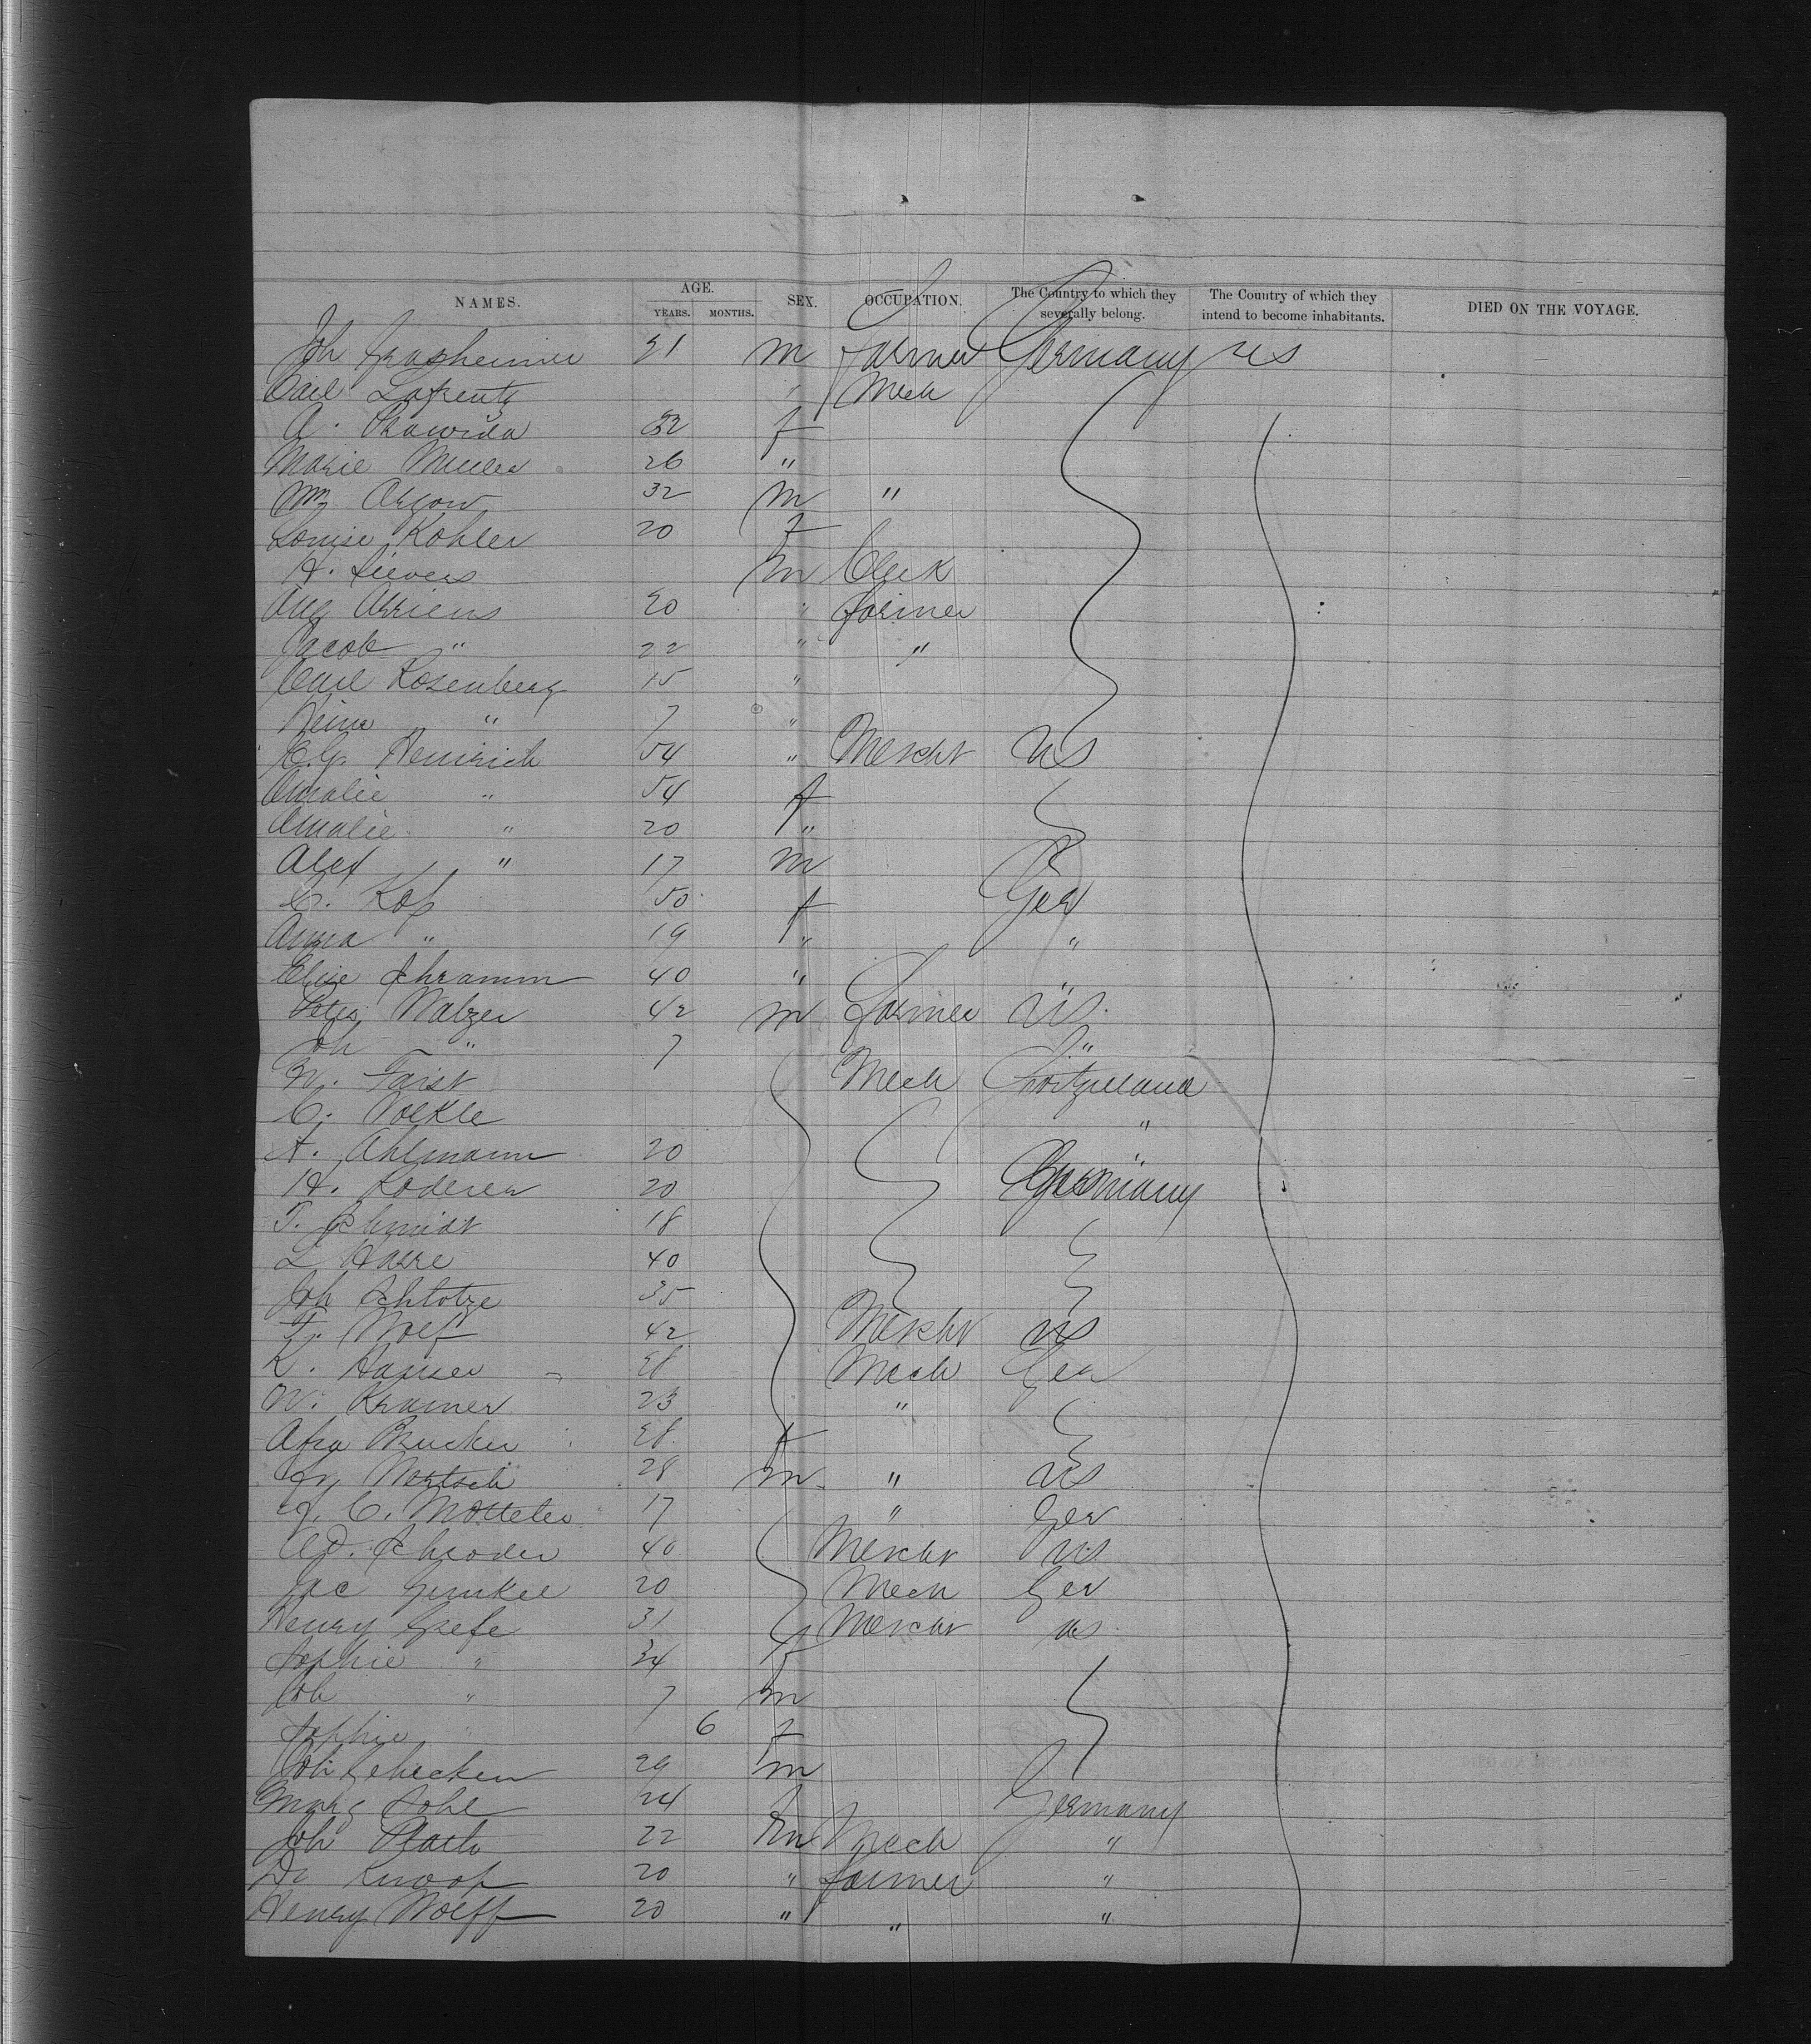 NAMES. AGE. YEARS. MONTHS. SEX. OCCUPATION. The Country to which they severally belong. The Country of which they intend to become inhabitants. DIED ON THE VOYAGE.
Joh m Farmer Germany us
Carl Lafrentz " Mech
A. 32 f
Marie Muller 26 "
Wm Argow 32 m "
Louise Kohler 20 f
H. Sievers m Clerk
Aug Arriens 20 " farmer
Jacob " 22 " "
Carl Rosenberg 15 "
Heinr " 7 "
C.G. Heinrich 54 " Mercht us
Amalie " 54 f
Amalie " 20 "
Alex " 17 m
C. Kop 50 f Ger
Anna " 19 " "
Elise Schramm 40 "
Peter Walzer 42 m Farmer us.
Joh " 7 "
W. Faist Mech Switzerland
C. Voelkle "
A. Ahlmann 20
H. Roderer 20 Germany
T. Schmidt 18
L Harre 40
Joh Schlotze 35
F. Wolf 42 Mercht us
K. Hauser 28 Mech Ger
W. Kramer 23 "
Afra Brucker 28 f
Fr. Wortsch 28 m " us
J. C. Motteler 17 " Ger
Ad. Schroder 40 Mercht us
Jac Gunkel 20 Mech Ger
Henry Grefe 31 Mercht us
Sophie " 34 f
Joh " 7 m
Sophie " 6 f
Joh Gehecken 29 m
Marg Sohl 24 Germany
Joh Plath 22 m Mech "
Dr Knoop 20 " farmer "
Henry Wolff 20 " " "